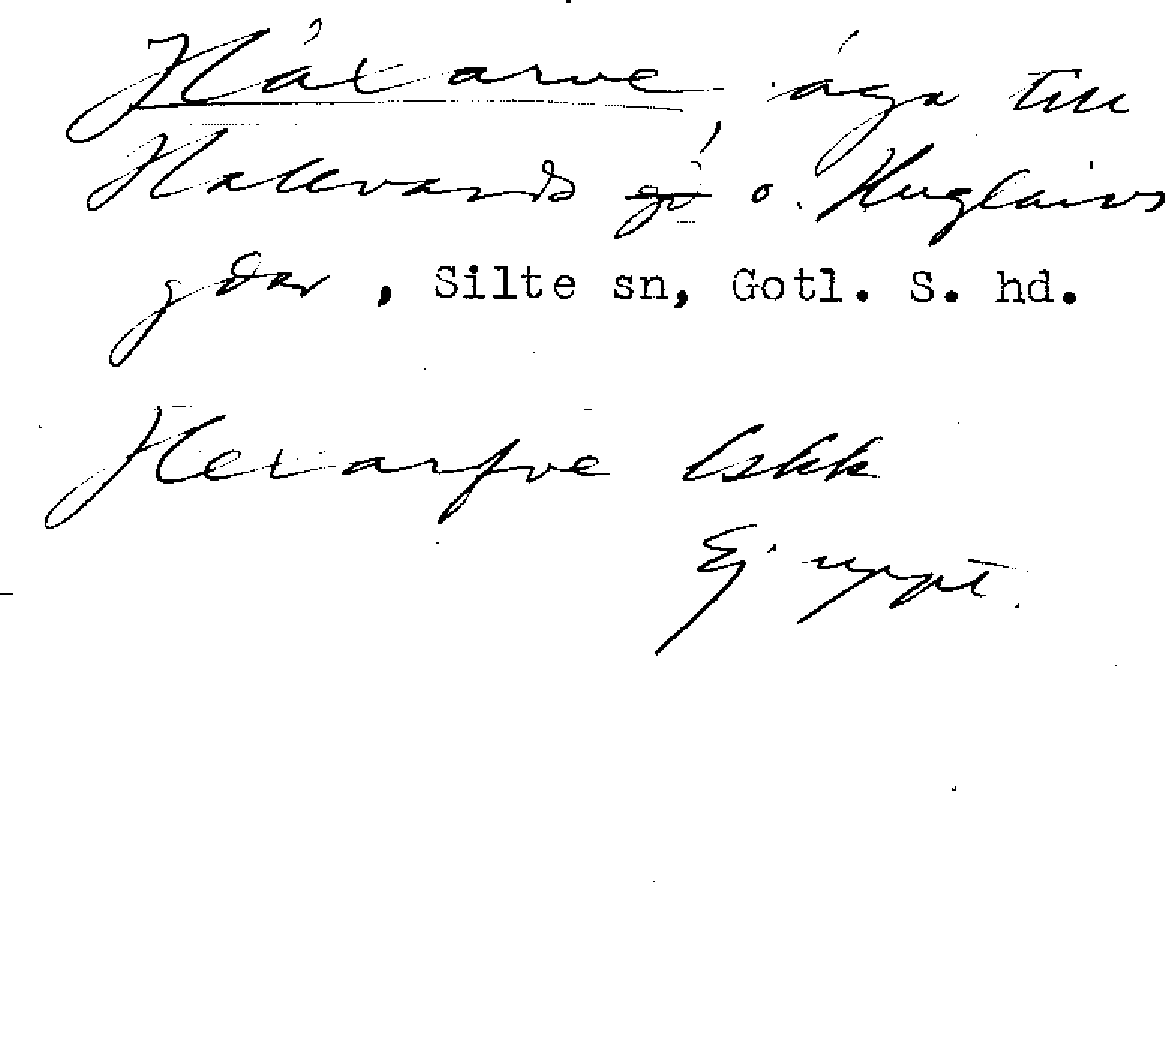 Häxarve, äga till
Hallvards o. Huglaivs
gdar, Silte sn, Gotl. S. hd.
Hexarfve lskk
Ej uppt.